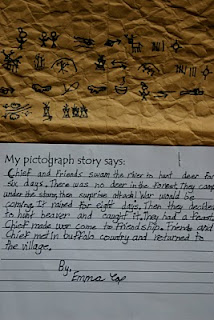 My pictograph story says:
Chief and Friends swam the river to hunt deer for
six days. There was no deer in the forest. They camp
under the stars, then surprise attack! War would be
coming. It rained for eight days. Then they decided
to hunt beaver and caught it. They had a feast.
Chief made war come to friendship. Friends and
Chief met in buffalo country and returned to
the village.
By,
Emma